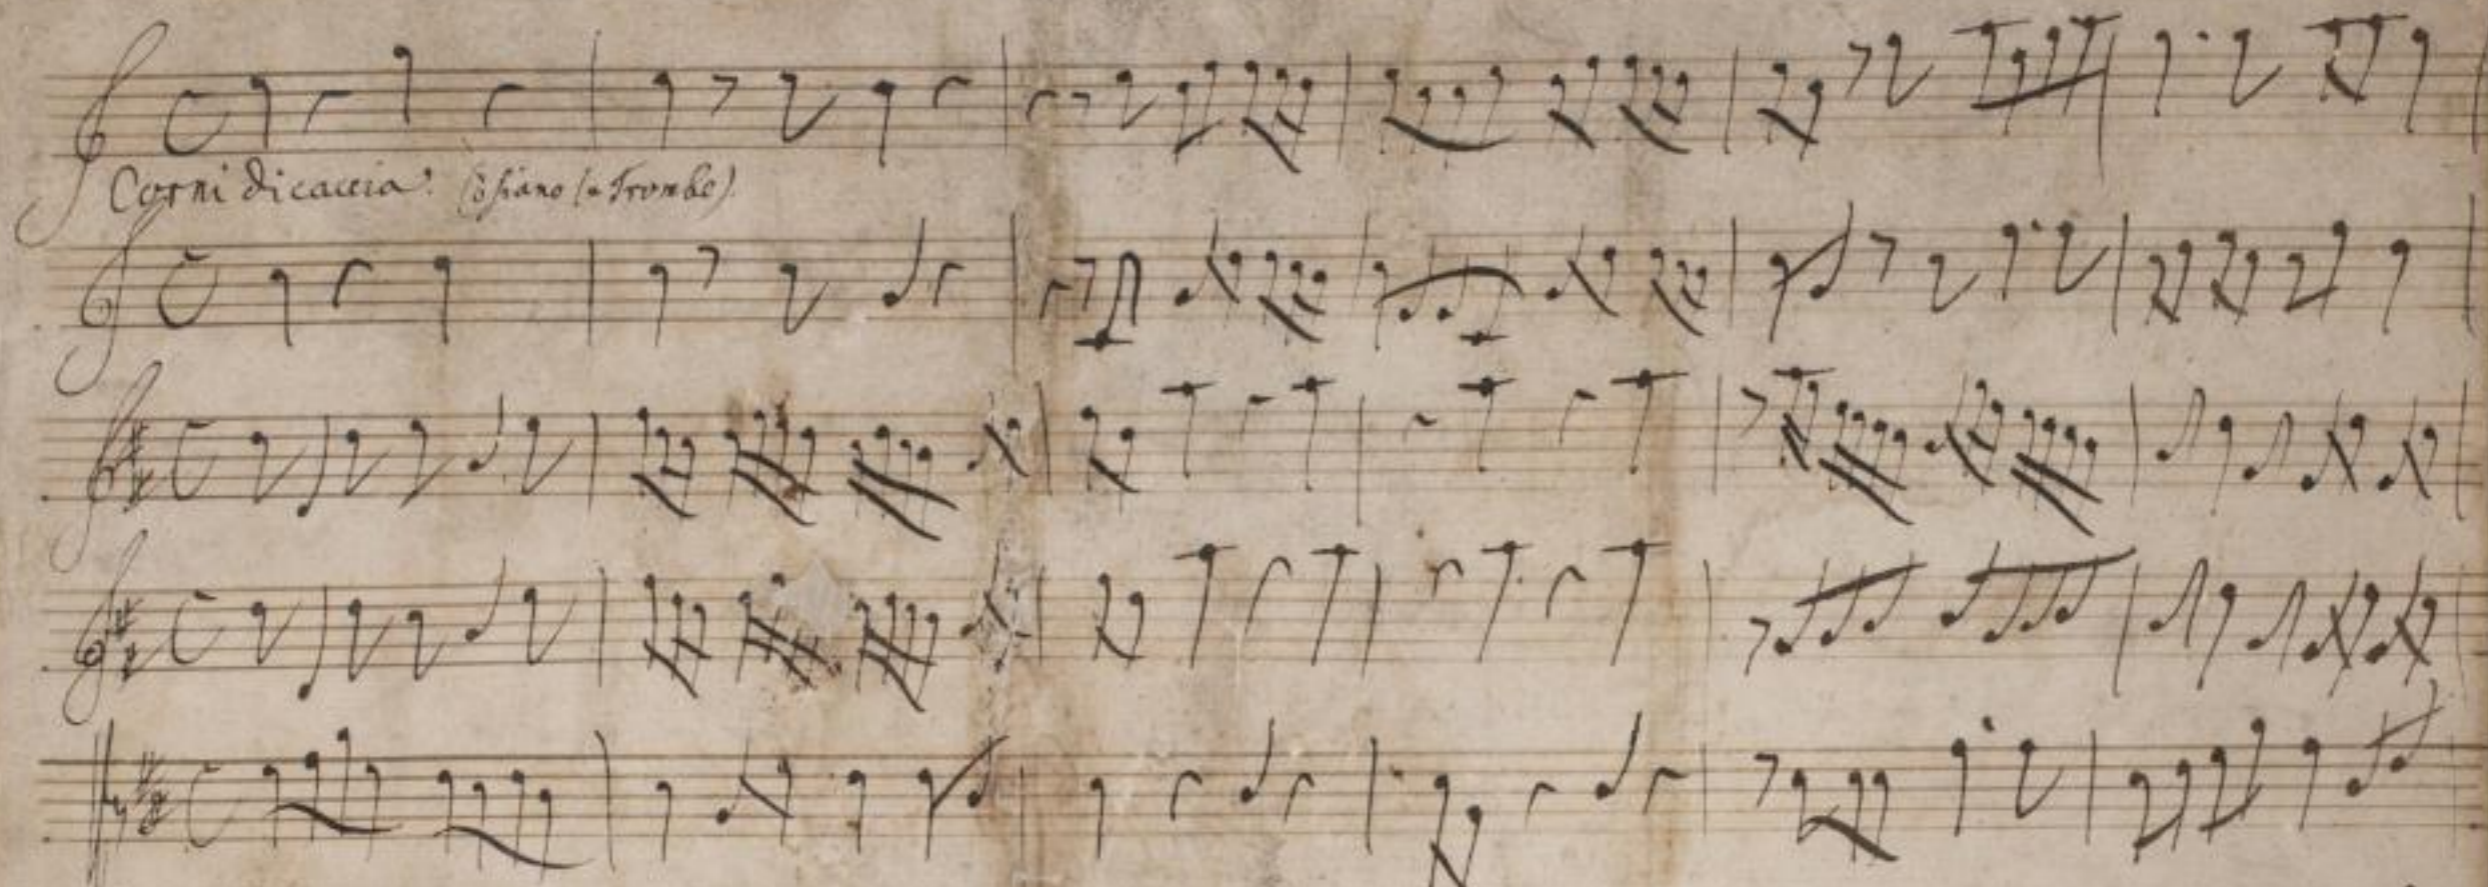 Corni di caccia. (ò siano le Trombe).